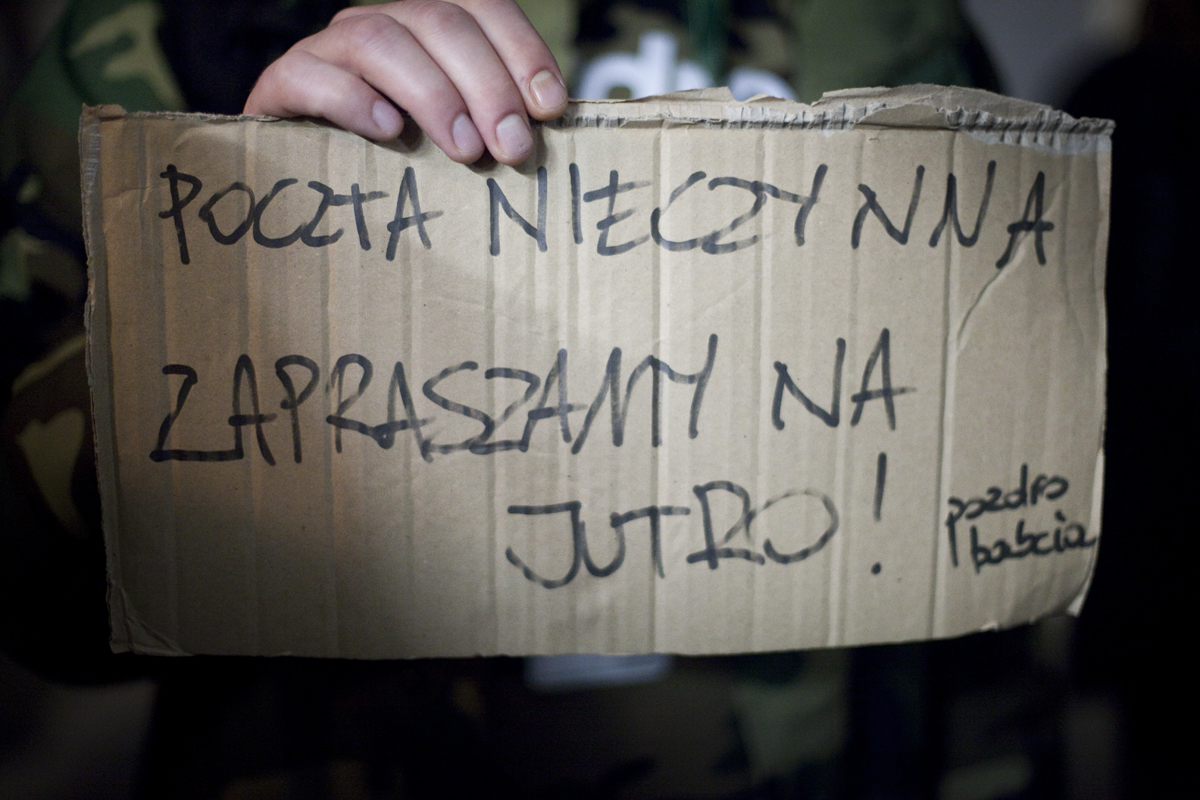 POCZTA NIECZYNNA
ZAPRASZAMY NA
JUTRO!
pozdro
babcia